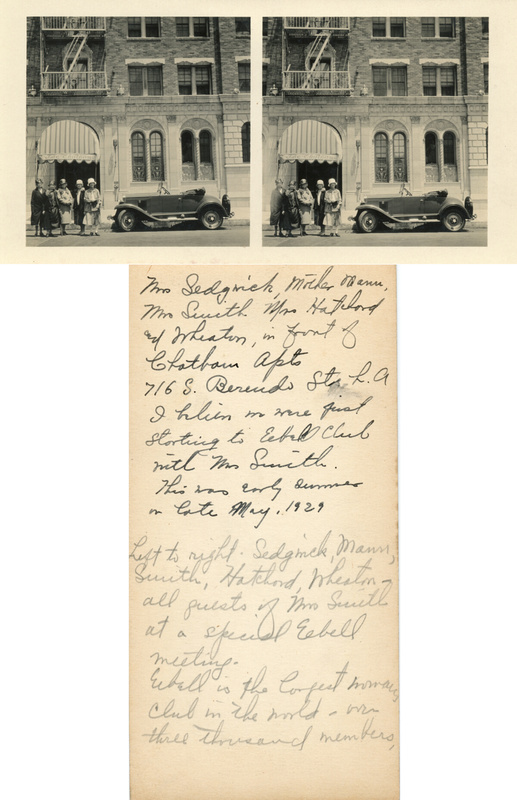 Mrs Sedgwick, Mother Mann,
Mrs Smith Mrs Hatchord
and Wheaton, in front of
Chatham Apts
716 S. Berendo St. L. A
I believe we were just
starting to Eebell Club
with Mrs Smith.
This was early summer
or late May, 1929
Left to right. Sedgwick, Mann,
Smith, Hatchord, Wheaton -
all guests of Mrs Smith
at a special Eebell
meeting.
Eebell is the largest womans
club in the world - over
three thousand members,